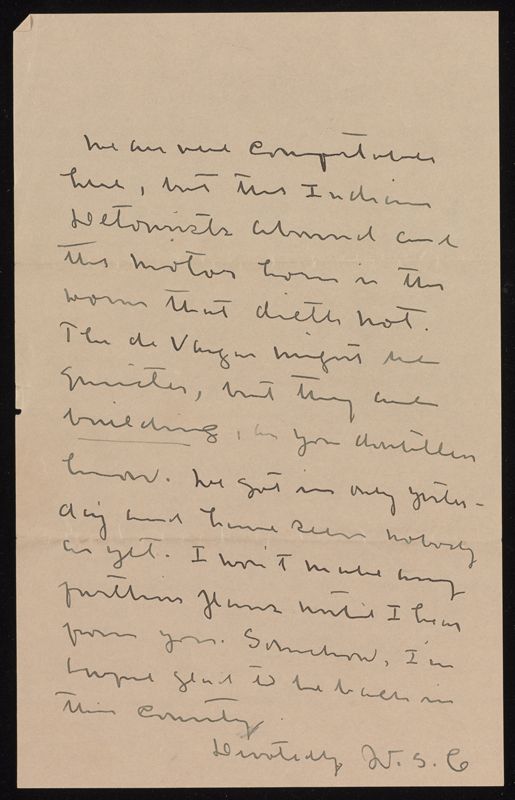 We are very comfortable
here, but the Indian
Detourists abound and
the motor horn is the
worm that dieth not.
The de Vargas might be
quieter, but they are
building, as you doubtless
know. We got in only yester-
day and have seen nobody
as yet. I won't make any
further plans until I hear
from you. Somehow, I'm
glad to be back in
this country.
Devotedly, W. S. C